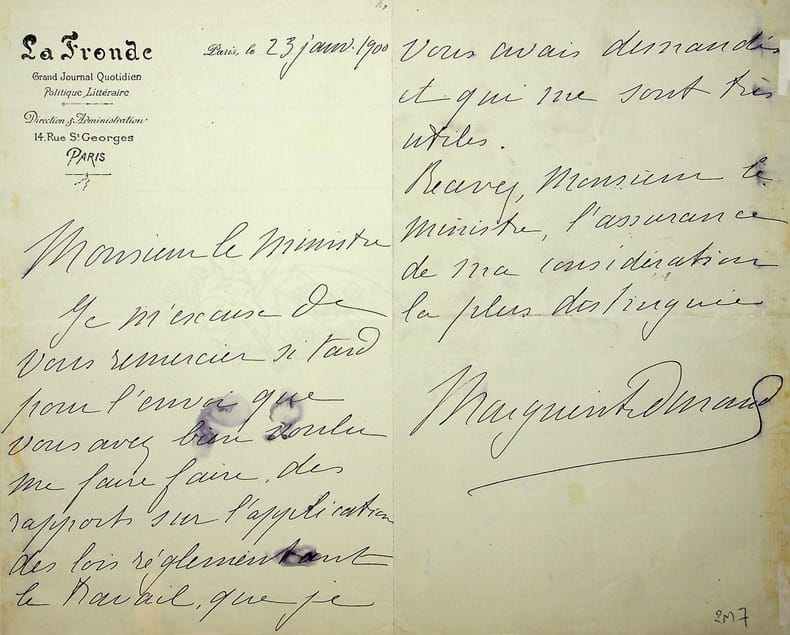 La Fronde
Grand Journal Quotidien
Politique, Littéraire
Direction & Administration
14, Rue St Georges
PARIS
Paris, le 23 janv. 1900
Monsieur le Ministre
Je m'excuse de
vous remercier si tard
pour l'envoi que
vous avez bien voulu
me faire faire, des
rapports sur l'application
des lois réglementant
le travail, que je
vous avais demandés
et qui me sont très
utiles.
Recevez, Monsieur le
Ministre, l'assurance
de ma considération
la plus distinguée
Marguerite Durand
2M7